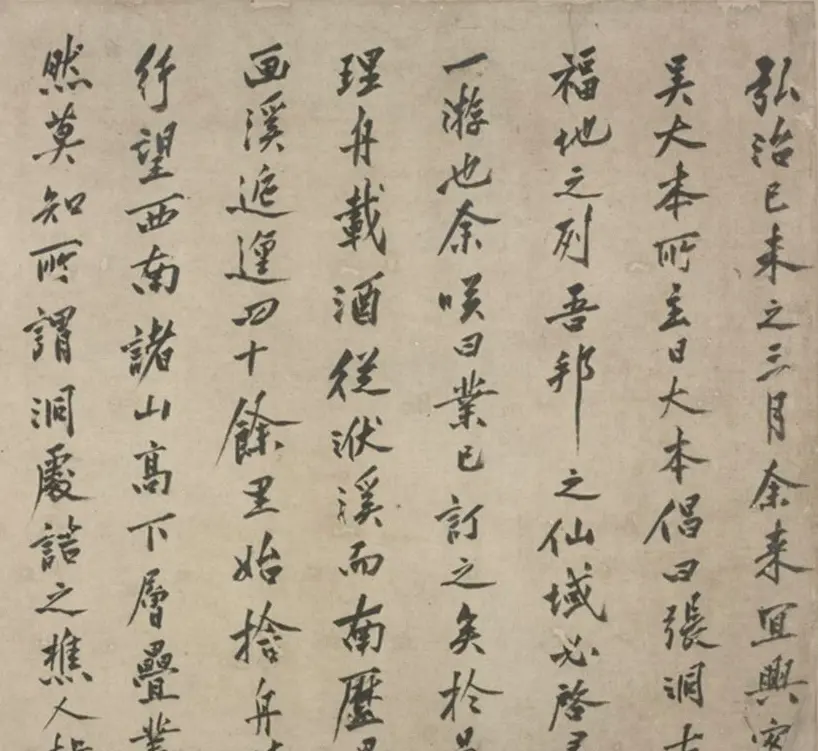 弘治己未之三月余来宜興客
吴大本所主日大本倡曰張洞古
福地之列吾邦之仙域必啓君
一游也余咲曰業已訂之矣於是
理舟載酒從洑溪而南歷
画溪迤邐四十餘里始捨舟
行望西南諸山高下層疊業
然莫知所謂洞處詰之樵人指